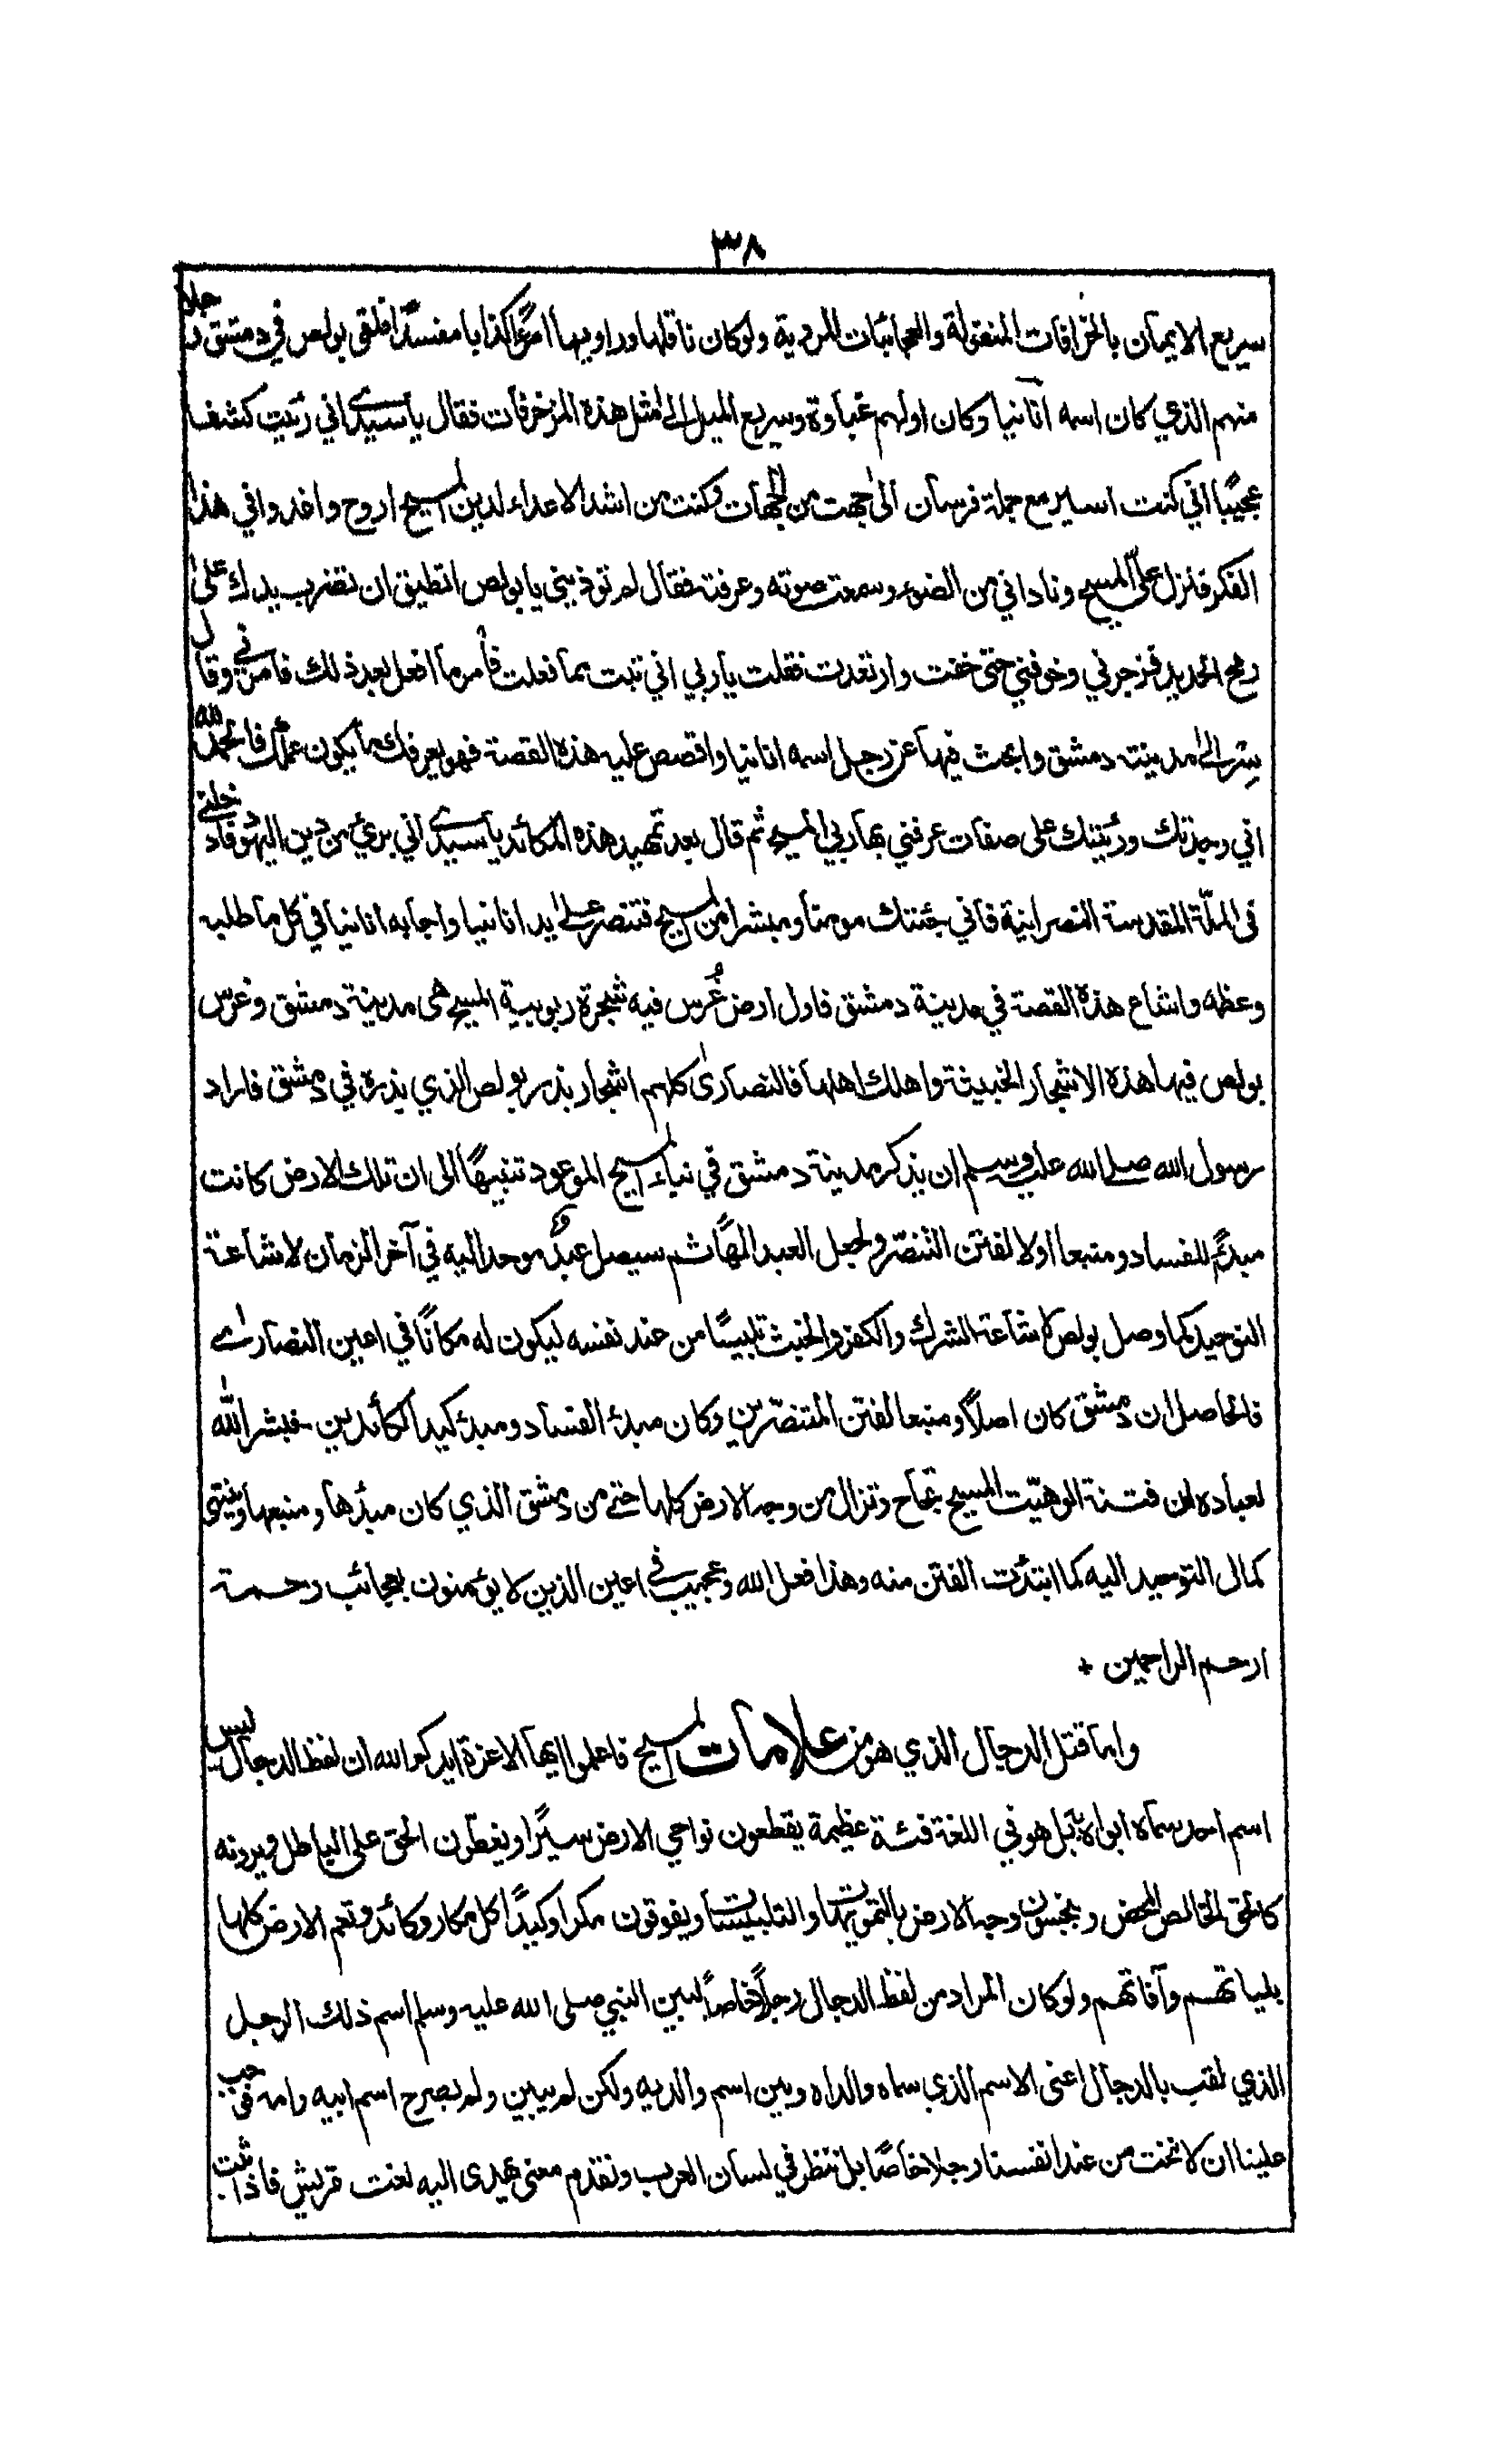 ٣٨
سريع الايمان بالخرافات المنقولة والعجائبات المروية ولوكان ناقلها وراويها امرًأ كذابا مفسدًا فلقى بولص في دمشق رجلا
منهم الذي كان اسمه انانيا وكان اولهم غباوة وسريع الميل الى مثل هذه المزخرفات فقال يا سيدي اني رئيت كشفا
عجيبًا اني كنت اسير مع جملة فرسان الى جهت من الجهات وكنت من اشد الاعداء لدين المسيح اروح واغدوا في هذا
الفكر فنزل عليّ المسيح وناداني من الضوء وسمعت صوته وعرفته فقال لم توذيني يا بولص اتطيق ان تضرب يدك على
رمح الحديد فزجرني وخوفني حتى خفت وارتعدت فقلت يا ربي اني تبت مما فعلت فأمر ما افعل بعد ذلك فامرني وقال
سِر الى مدينة دمشق وابحث فيها عن رجل اسمه انانيا واقصص عليه هذه القصة فهو يعرفك ما يكون عملك فالحمد لله
اني وجدتك ورئيتك على صفات عرفني بها ربي المسيح ثم قال بعد تمهيد هذه المكائد يا سيدي اني برئ من دين اليهود فادخلني
فى الملّة المقدسة النصرانية فاني جئتك مومنا ومبشرا من المسيح فتنصر على يد انانيا واجابه انانيا في كل ما طلبه
وعظمه واشاع هذه القصة في مدينة دمشق فاول ارض غُرس فيه شجرة ربوبية المسيح هى مدينة دمشق وغرس
بولص فيها هذه الاشجار الخبيثة واهلك اهلها فالنصارىٰ كلهم اشجار بذر بولص الذي بذره في دمشق فاراد
رسول الله صلى الله عليه وسلم ان يذكر مدينة دمشق في نباء المسيح الموعود تنبيهًا الى ان تلك الارض كانت
مبدءً للفساد ومنبعا اولا لفتن التنصّر ولجعل العبد الهًا ثم سيصل عبدٌ موحد اليه في آخر الزمان لاشاعة
التوحيد كما وصل بولص لاشاعة الشرك والكفر والخبث تلبيسًا من عند نفسه ليكون له مكانًا في اعين النصارىٰ
فالحاصل ان دمشق كان اصلًا ومنبعا لفتن المتنصّرين وكان مبدءٔ الفساد ومبدءٔ كيد الكائدين - فبشر اللّٰه
لعباده ان فتنة الوهيّت المسيح تجاح وتزال من وجه الارض كلها حتى من دمشق الذي كان مبدءها ومنبعها وينتهى
كمال التوحيد اليه كما ابتدئت الفتن منه وهذا فعل الله وعجيب في اعين الذين لا يؤمنون بعجائب رحمة
ارحم الراحمين +
واما قتل الدجال الذي هو من علامات المسيح فاعلموا ايها الاعزة ايدكم الله ان لفظ الدجال ليس
اسم احد سماه ابواه به بل هو في اللغة فئة عظيمة يقطعون نواحي الارض سيرًا ويغطّون الحق على الباطل ويرونه
كالحق الخالص المحض وينجسون وجه الارض بالتمويهات والتلبيسات ويفوقون مكرا وكيدًا كل مكار وكائد وتعم الارض كلها
بلياتهم وآفاتهم ولو كان المراد من لفظ الدجال رجلًا خاصًا لبين النبي صلى الله عليه وسلم اسم ذلك الرجل
الذي لقب بالدجال اعنى الاسم الذي سماه والداه وبين اسم والديه ولكن لم يبين ولم يصرح اسم ابيه وامه فوجب
علينا ان لا ننحت من عند انفسنا رجلا خاصًا بل ننظر في لسان العرب ونقدم معنى يهدى اليه لغت قريش فاذا ثبت